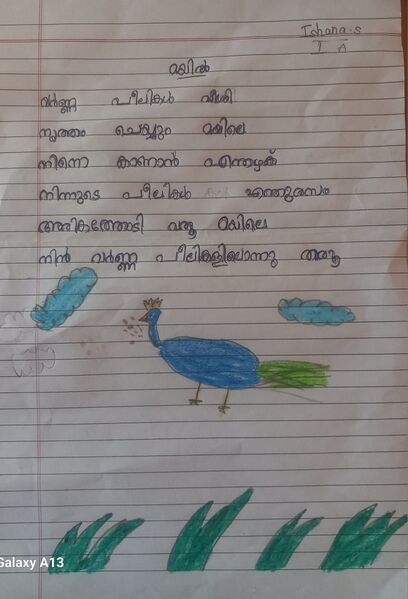 Ishana.s
I A
മയിൽ
വർണ്ണ പീലികൾ വീശി
നൃത്തം ചെയ്യും മയിലെ
നിന്നെ കാണാൻ എന്തഴക്
നിന്നുടെ പീലികൾ എന്തുരസം
അരികത്തോടി വരൂ മയിലെ
നിൻ വർണ്ണ പീലികളിലൊന്നു തരൂ
Galaxy A13